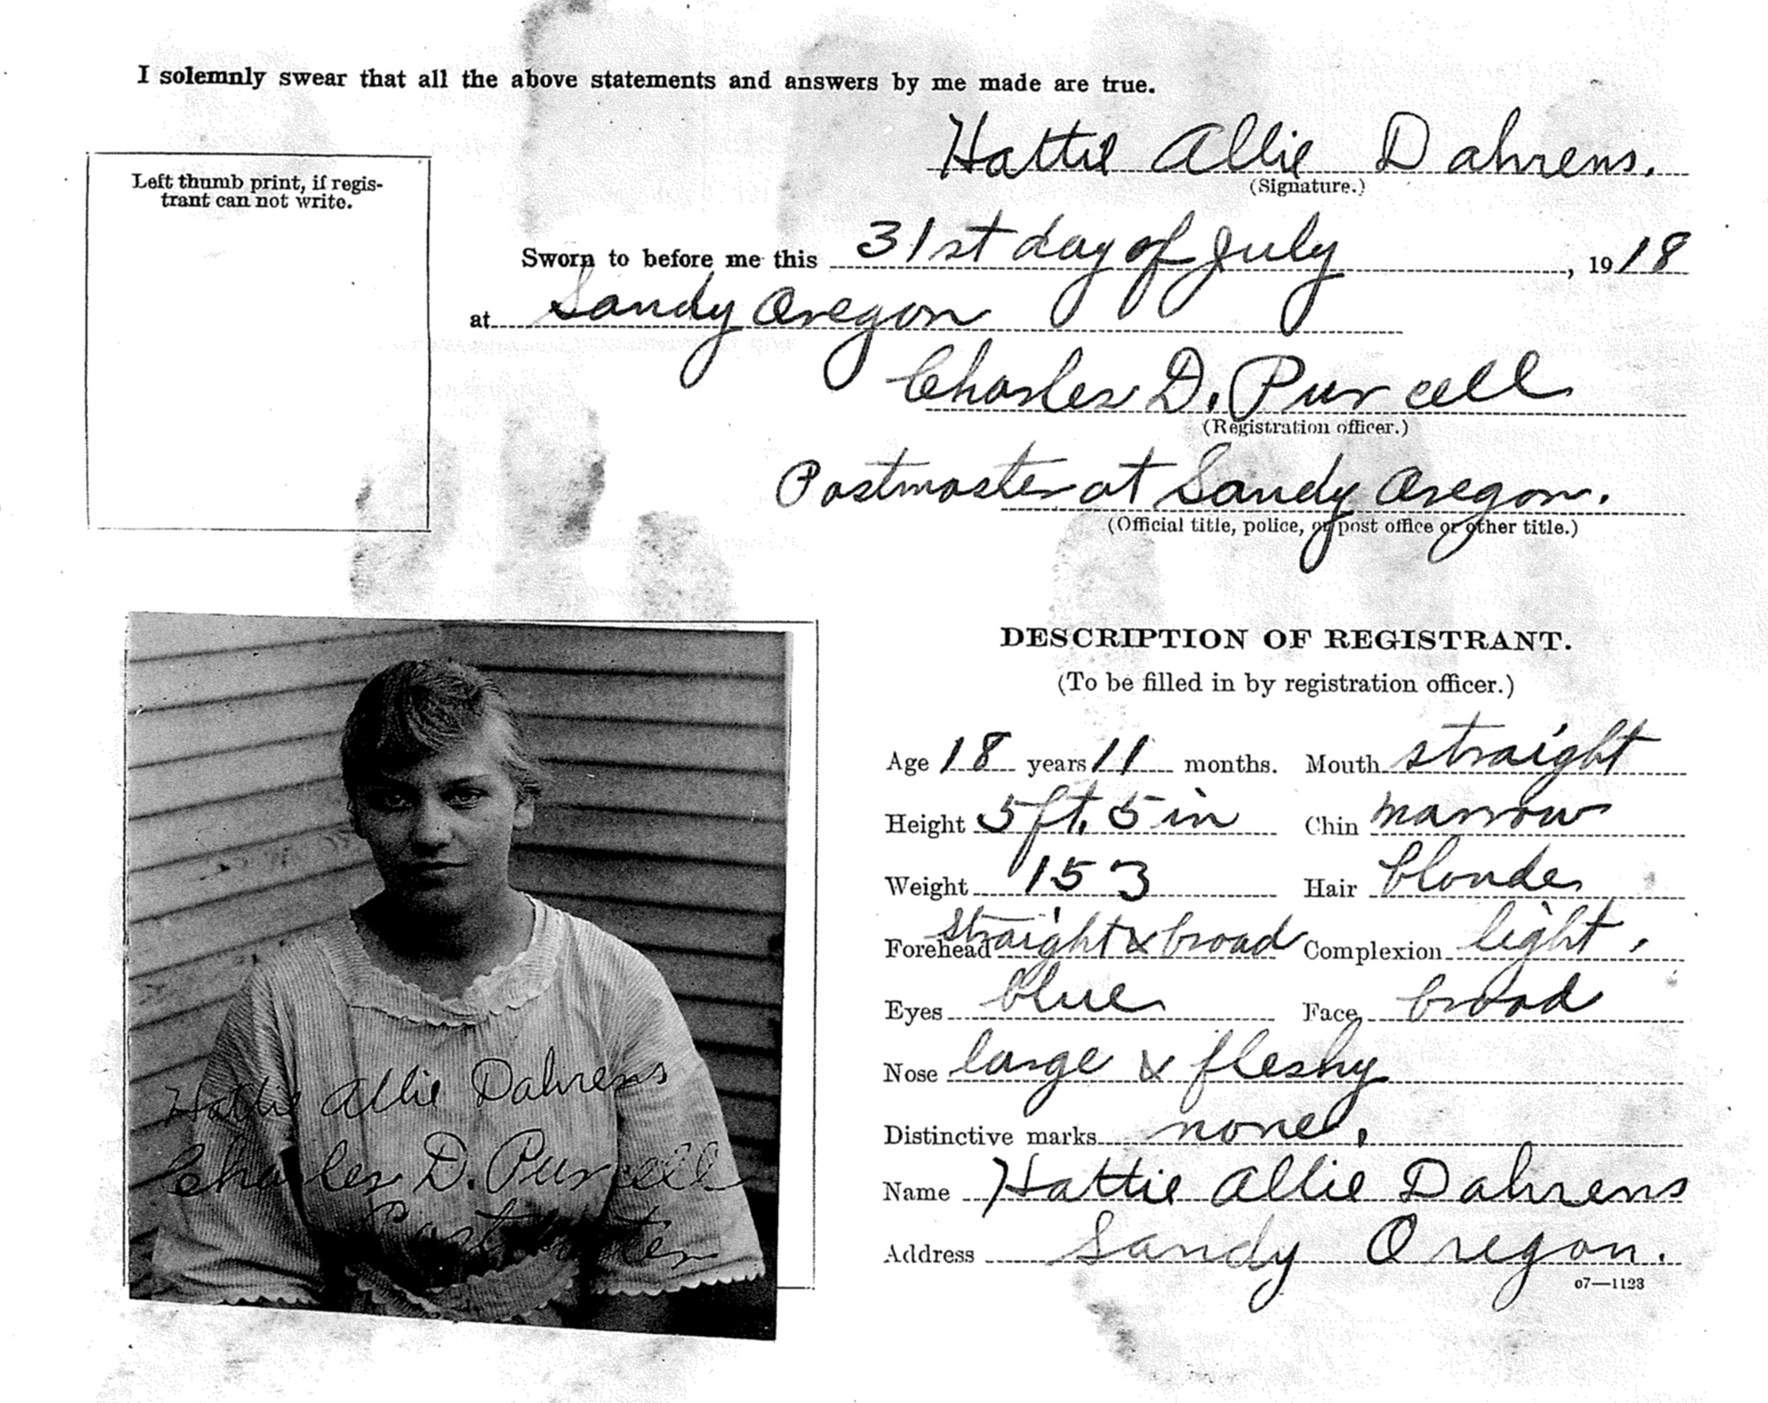 I solemnly swear that all the above statements and answers by me made are true.
Hattie Allie Dahrens.
(Signature.)
Left thumb print, if regis-
trant can not write.
Sworn to before me this 31st day of July, 1918
at Sandy Oregon
Charles D. Purcell
(Registration officer.)
Postmaster at Sandy Oregon.
(Official title, police, or post office or other title.)
DESCRIPTION OF REGISTRANT.
(To be filled in by registration officer.)
Age 18 years 11 months. Mouth straight
Height 5 ft. 5 in Chin narrow
Weight 153 Hair blonde
Forehead straight & broad Complexion light,
Eyes blue Face broad
Nose large & fleshy
Distinctive marks none.
Name Hattie Allie Dahrens
Address Sandy Oregon.
07—1123
Hattie Allie Dahrens
Charles D. Purcell
Postmaster